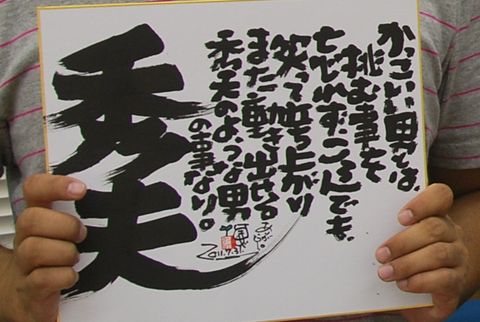 かっこいい男とは、
挑む事を
もじれず、ころんでも、
笑って立ち上がり
また動き出せる。
秀夫のような男
の事なり。
秀夫
2011.7.31